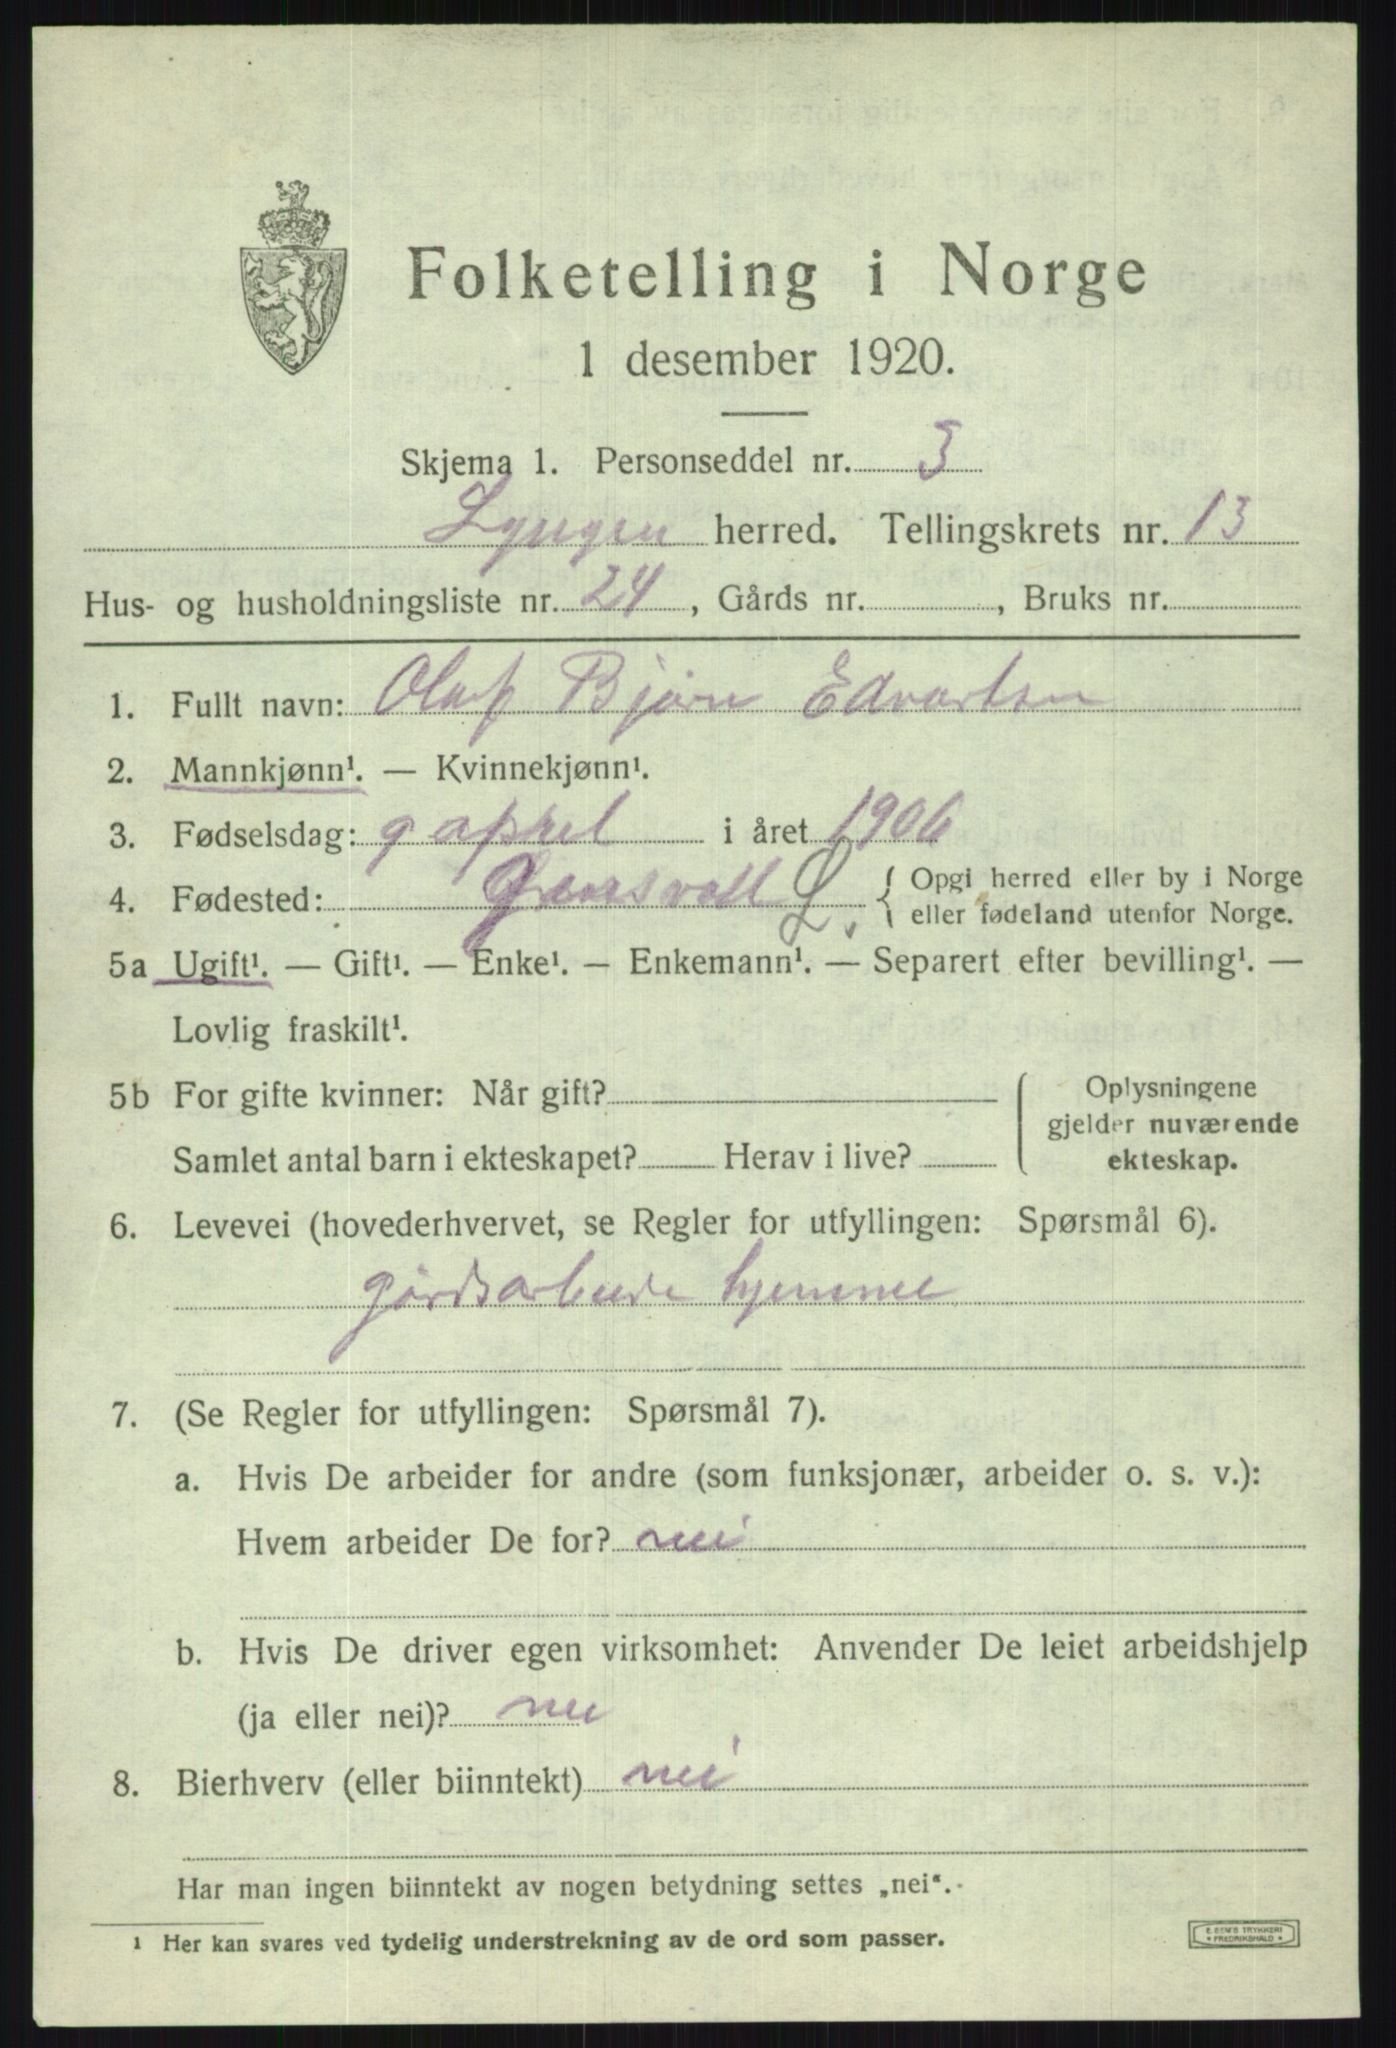 Folketelling i Norge
1 desember 1920.
Skjema 1. Personseddel nr. 3
Lyngen herred. Tellingskrets nr. 13
Hus- og husholdningsliste nr. 24, Gårds nr. , Bruks nr.
1. Fullt navn: Olaf Bjørn Edvartsen
2. Mannkjønn¹. — Kvinnekjønn¹.
3. Fødselsdag: 9 april i året 1906
4. Fødested: L. { Opgi herred eller by i Norge
eller fødeland utenfor Norge.
5a Ugift¹. — Gift¹. — Enke¹. — Enkemann¹. — Separert efter bevilling¹. —
Lovlig fraskilt¹.
5b For gifte kvinner: Når gift?
Samlet antal barn i ekteskapet? Herav i live?
Oplysningene
gjelder nuværende
ekteskap.
6. Levevei (hovederhvervet, se Regler for utfyllingen: Spørsmål 6).
gårdsarbeide hjemme
7. (Se Regler for utfyllingen: Spørsmål 7).
a. Hvis De arbeider for andre (som funksjonær, arbeider o. s. v.):
Hvem arbeider De for? nei
b. Hvis De driver egen virksomhet: Anvender De leiet arbeidshjelp
(ja eller nei)? nei
8. Bierhverv (eller biinntekt) nei
Har man ingen biinntekt av nogen betydning settes „nei“.
¹ Her kan svares ved tydelig understrekning av de ord som passer.
E. SEM'S TRYKKERI
FREDRIKSHALD